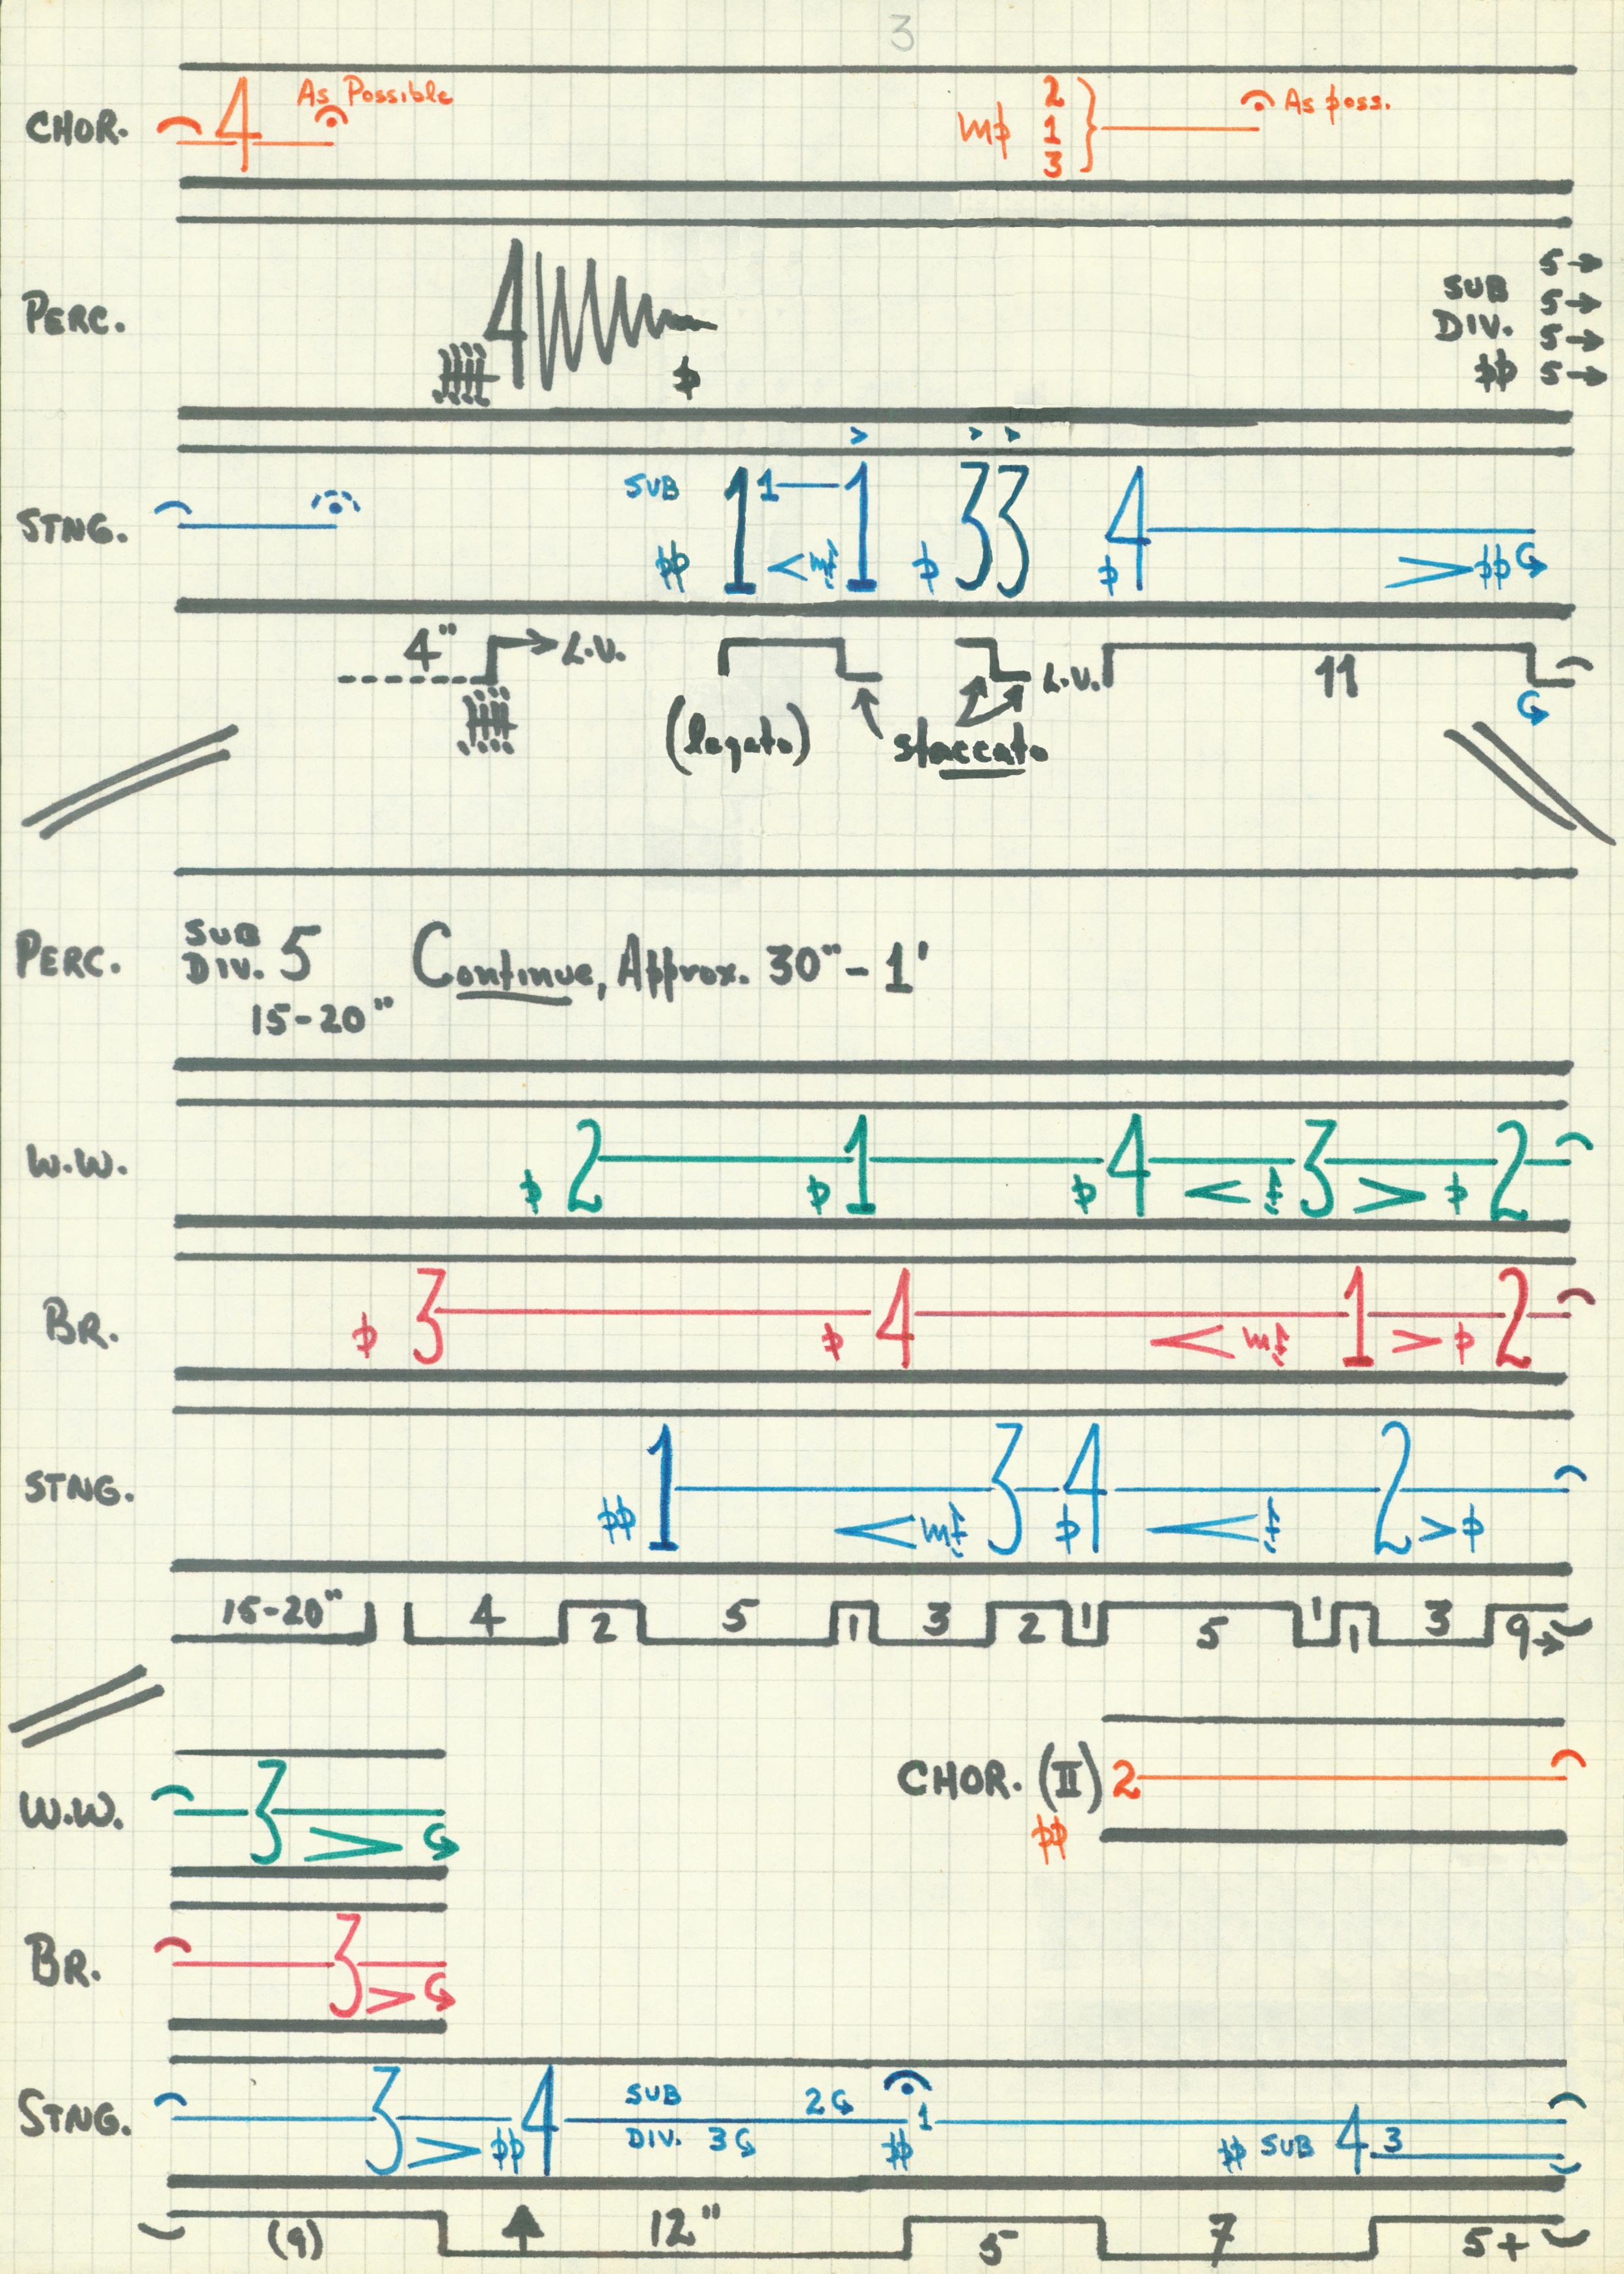 3
CHOR. 4 As Possible mp 2 As poss.
1
3
PERC. 4 p SUB DIV. pp 5→
5→
5→
5→
STNG. SUB pp 1 1 < mf 1 > p 33 > > p 4 > pp
4" L.V. L.V. 11
(legato) staccato
PERC. SUB DIV. 5 Continue, Approx. 30"-1'
15-20"
W.W. p 2 p 1 p 4 < f 3 > p 2
BR. p 3 p 4 < mf 1 > p 2
STNG. pp 1 < mf 3 p 4 < f 2 > p
15-20" 4 2 5 1 3 2 1 5 1 1 3 9→
W.W. 3 >
CHOR. (II) 2
pp
BR. 3 >
STNG. 3 > pp 4 SUB 2 1 4 3
DIV. 3 pp pp SUB
(9) 12" 5 7 5+